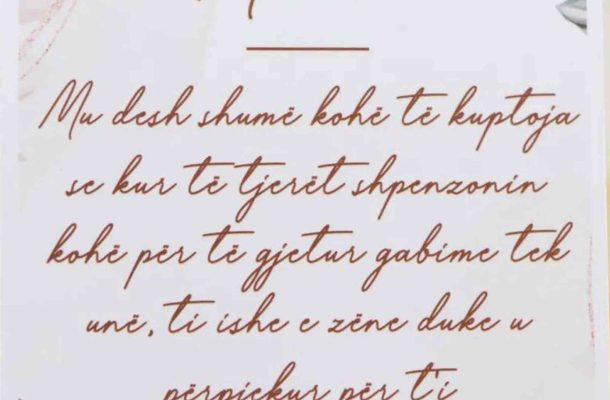 Mu desh shumë kohë të kuptoja
se kur të tjerët shpenzonin
kohë për të gjetur gabime tek
unë, ti ishe e zëne duke u
përpjekur për t'i